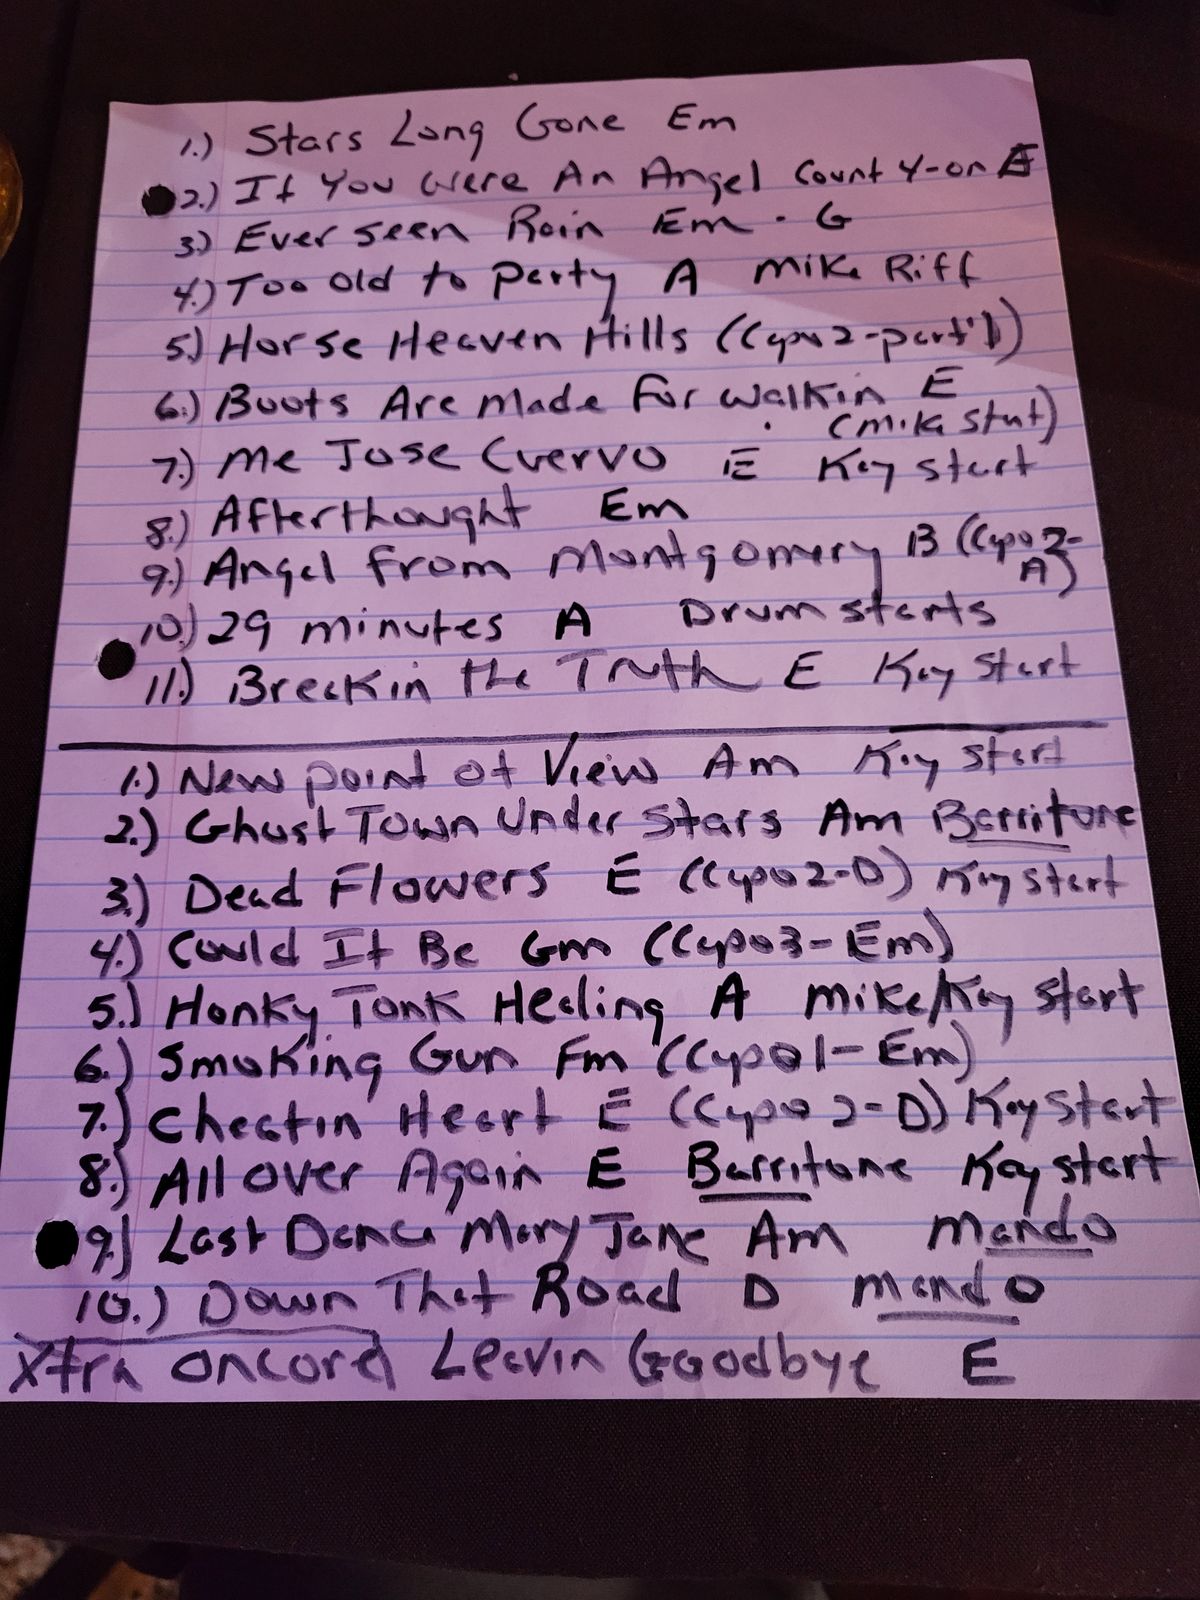 1.) Stars Long Gone Em
2.) If You Were An Angel Count 4-on E
3.) Ever seen Rain Em - G
4.) Too Old to Party A Mike Riff
5.) Horse Heaven Hills (Capo 2-part 1)
6.) Boots Are Made For Walkin E
(Mike Start)
7.) Me Jose Cuervo E Key start
8.) Afterthought Em
9.) Angel From Montgomery B (Capo 2-
A)
10.) 29 minutes A Drum starts
11.) Breakin the Truth E Key Start
1.) New point of View Am Key Start
2.) Ghost Town Under Stars Am Barritone
3.) Dead Flowers E (Capo 2-D) Key start
4.) Could It Be Gm (Capo 3-Em)
5.) Honky Tonk Healing A Mike/Key Start
6.) Smoking Gun Fm (Capo 1-Em)
7.) Cheatin Heart E (Capo 2-D) Key Start
8.) All over Again E Barritone Key start
9.) Last Dance Mary Jane Am Mando
10.) Down That Road D Mando
Xtra oncore Leavin Goodbye E